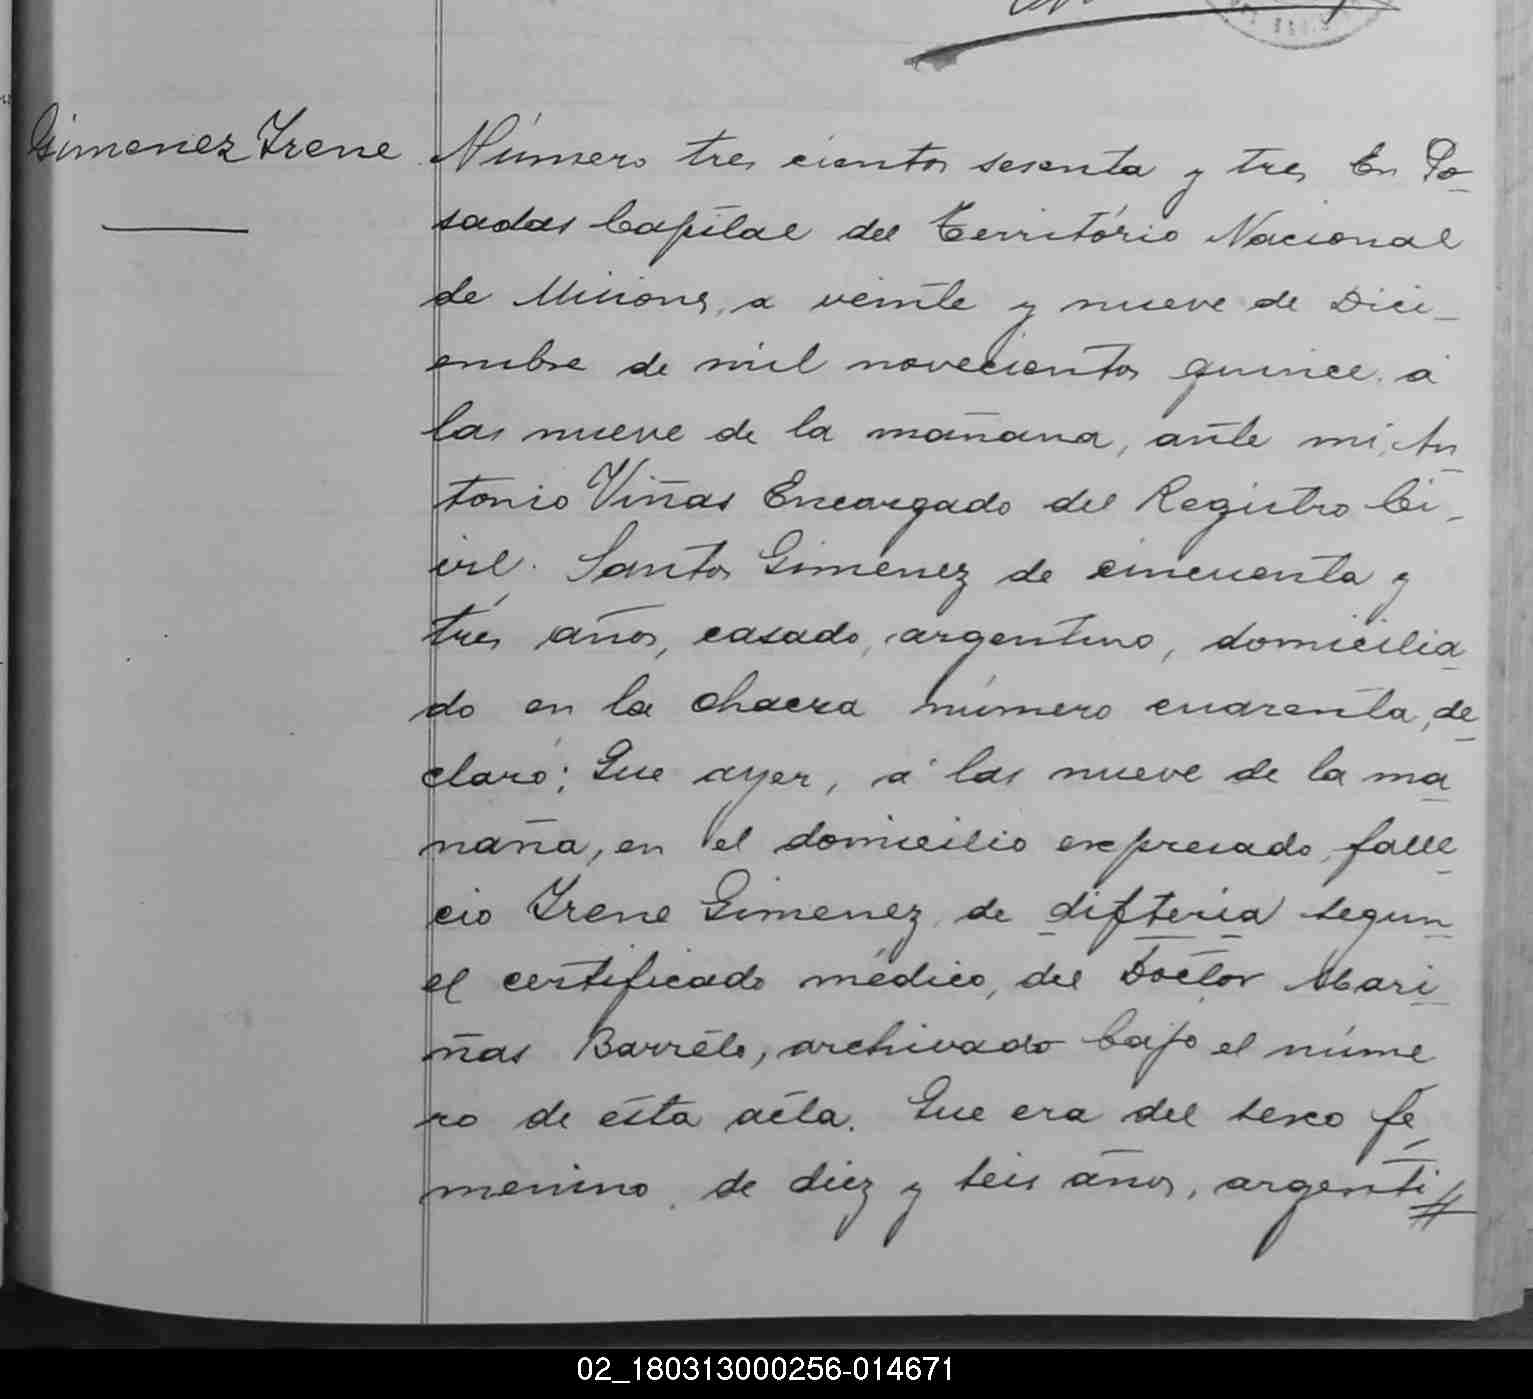 Gimenez Irene
Número tres cientos sesenta y tres En Po-
sadas Capital del Território Nacional
de Misiones, a veinte y nueve de Dici-
embre de mil novecientos quince, á
las nueve de la mañana, ante mi, An
tonio Viñas Encargado del Registro Ci-
vil. Santos Gimenez de cincuenta y
tres años, casado, argentino, domicilia
do en la chacra número cuarenta, de
claró; Que ayer, á las nueve de la ma
ñaña, en el domicilio expresado, falle
cio Irene Gimenez, de difteria segun
el certificado médico, del Doctor Mari
ñas Barréto, archivado bajo el núme
ro de esta acta. Que era del sexo fe
menino, de diez y seis años, argenti//
02_180313000256-014671